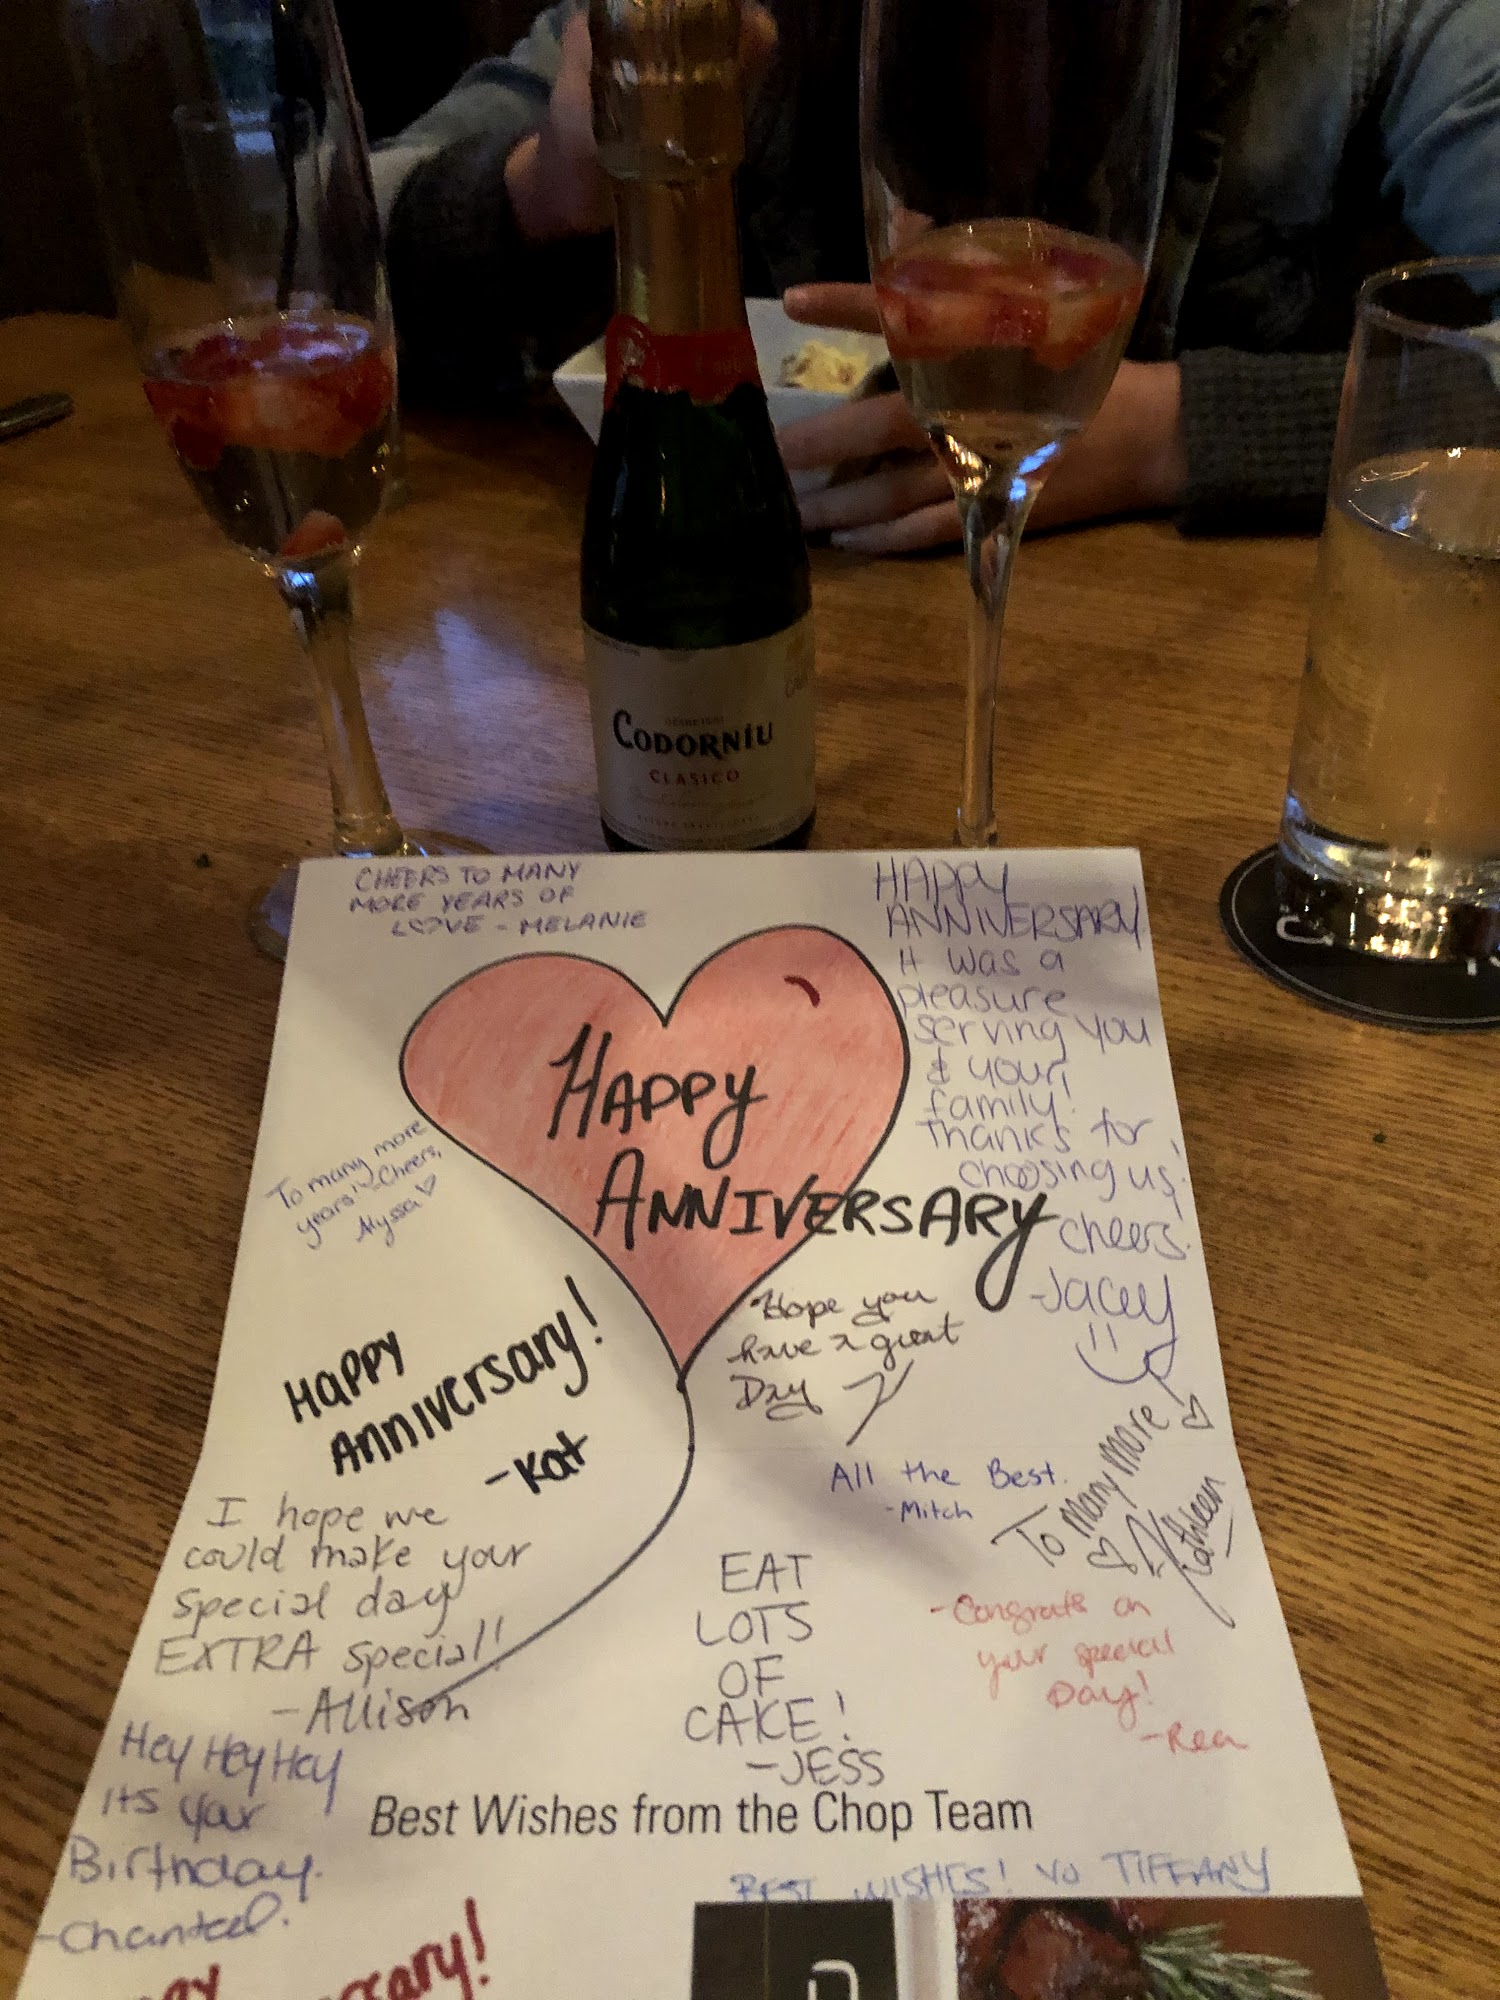 CODORNÍU
CLASICO
CHEERS TO MANY
MORE YEARS OF
LOVE - MELANIE
HAPPY
ANNIVERSARY
It was a
pleasure
serving you
& your
family!
Thanks for
choosing us!
cheers!
-Jacey
HAPPY
ANNIVERSARY
To many more
years! -Cheers,
Alyssa
HAPPY
ANNIVERSARY!
-Kat
Hope you
have a great
Day
All the Best.
-Mitch
To Many More
Kathleen
I hope we
could make your
special day
EXTRA special!
-Allison
EAT
LOTS
OF
CAKE!
-JESS
-Congrats on
your special
Day!
-Rea
Hey Hey Hey
its your
Birthday.
-Chantel.
Best Wishes from the Chop Team
BEST WISHES! TIFFANY